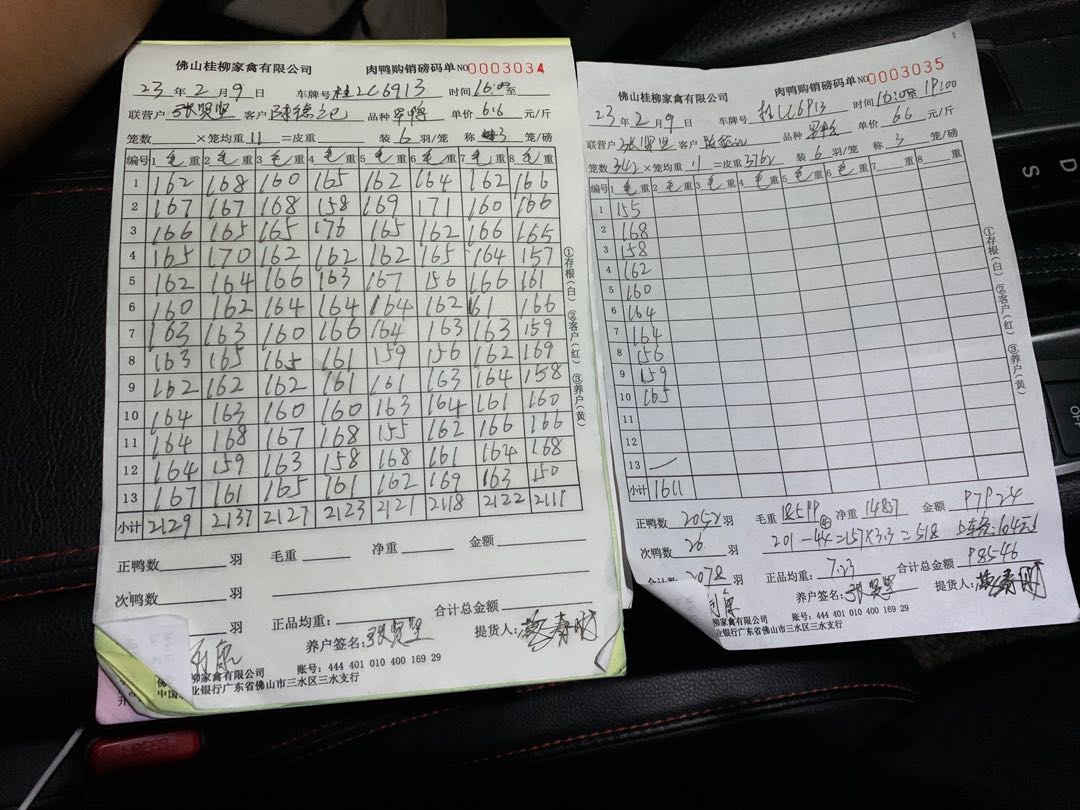 佛山桂柳家禽有限公司 肉鸭购销磅码单 NO 0003034
23 年 2 月 9 日 车牌号 桂2C6913 时间 16:00 至
联营户 张贤坚 客户 品种 单价 6.6 元/斤
笼数 ×笼均重 11 =皮重 装 6 羽/笼 称 3 笼/磅
编号 1 毛 重 2 毛 重 3 毛 重 4 毛 重 5 毛 重 6 毛 重 7 毛 重 8 毛 重
1 162 168 160 165 162 164 162 166
2 167 167 168 158 169 171 160 166
3 166 165 165 176 165 162 166 165
4 165 170 162 162 162 165 164 157
5 162 164 166 163 167 156 166 161
6 160 162 164 164 164 162 161 166
7 163 163 160 166 164 163 163 159
8 163 165 165 161 159 156 162 169
9 162 162 162 161 161 163 164 158
10 164 163 160 160 163 164 161 160
11 164 168 167 168 155 162 166 166
12 164 159 163 158 168 161 164 168
13 167 161 165 161 162 169 163 150
小计 2129 2137 2127 2123 2121 2118 2122 2111
正鸭数 羽 毛重 净重 金额
次鸭数 羽
羽 正品均重: 合计总金额
养户签名: 张贤坚 提货人:
家禽有限公司 账号: 444 401 010 400 169 29
中国 业银行广东省佛山市三水区三水支行
①存根(白) ②客户(红) ③养户(黄)
佛山桂柳家禽有限公司 肉鸭购销磅码单 NO 0003035
23 年 2 月 9 日 车牌号 时间 16:00 至 19:00
联营户 张贤坚 客户 品种 单价 6.6 元/斤
笼数 342 ×笼均重 11 =皮重 3762 装 6 羽/笼 称 3 笼/磅
编号 1 毛 重 2 毛 重 3 毛 重 4 毛 重 5 毛 重 6 毛 重 7 重 8 重
1 155
2 168
3 158
4 162
5 160
6 164
7 164
8 156
9 159
10 165
11
12
13
小计 1611
正鸭数 2052 羽 毛重 18599 净重 14837 金额 97924
次鸭数 26 羽 201-44=157×3.3=518
合计数 2078 羽 正品均重: 7.23 合计总金额 98546
养户签名: 张贤坚 提货人:
柳家禽有限公司 账号: 444 401 010 400 169 29
业银行广东省佛山市三水区三水支行
①存根(白) ②客户(红) ③养户(黄)
D
S